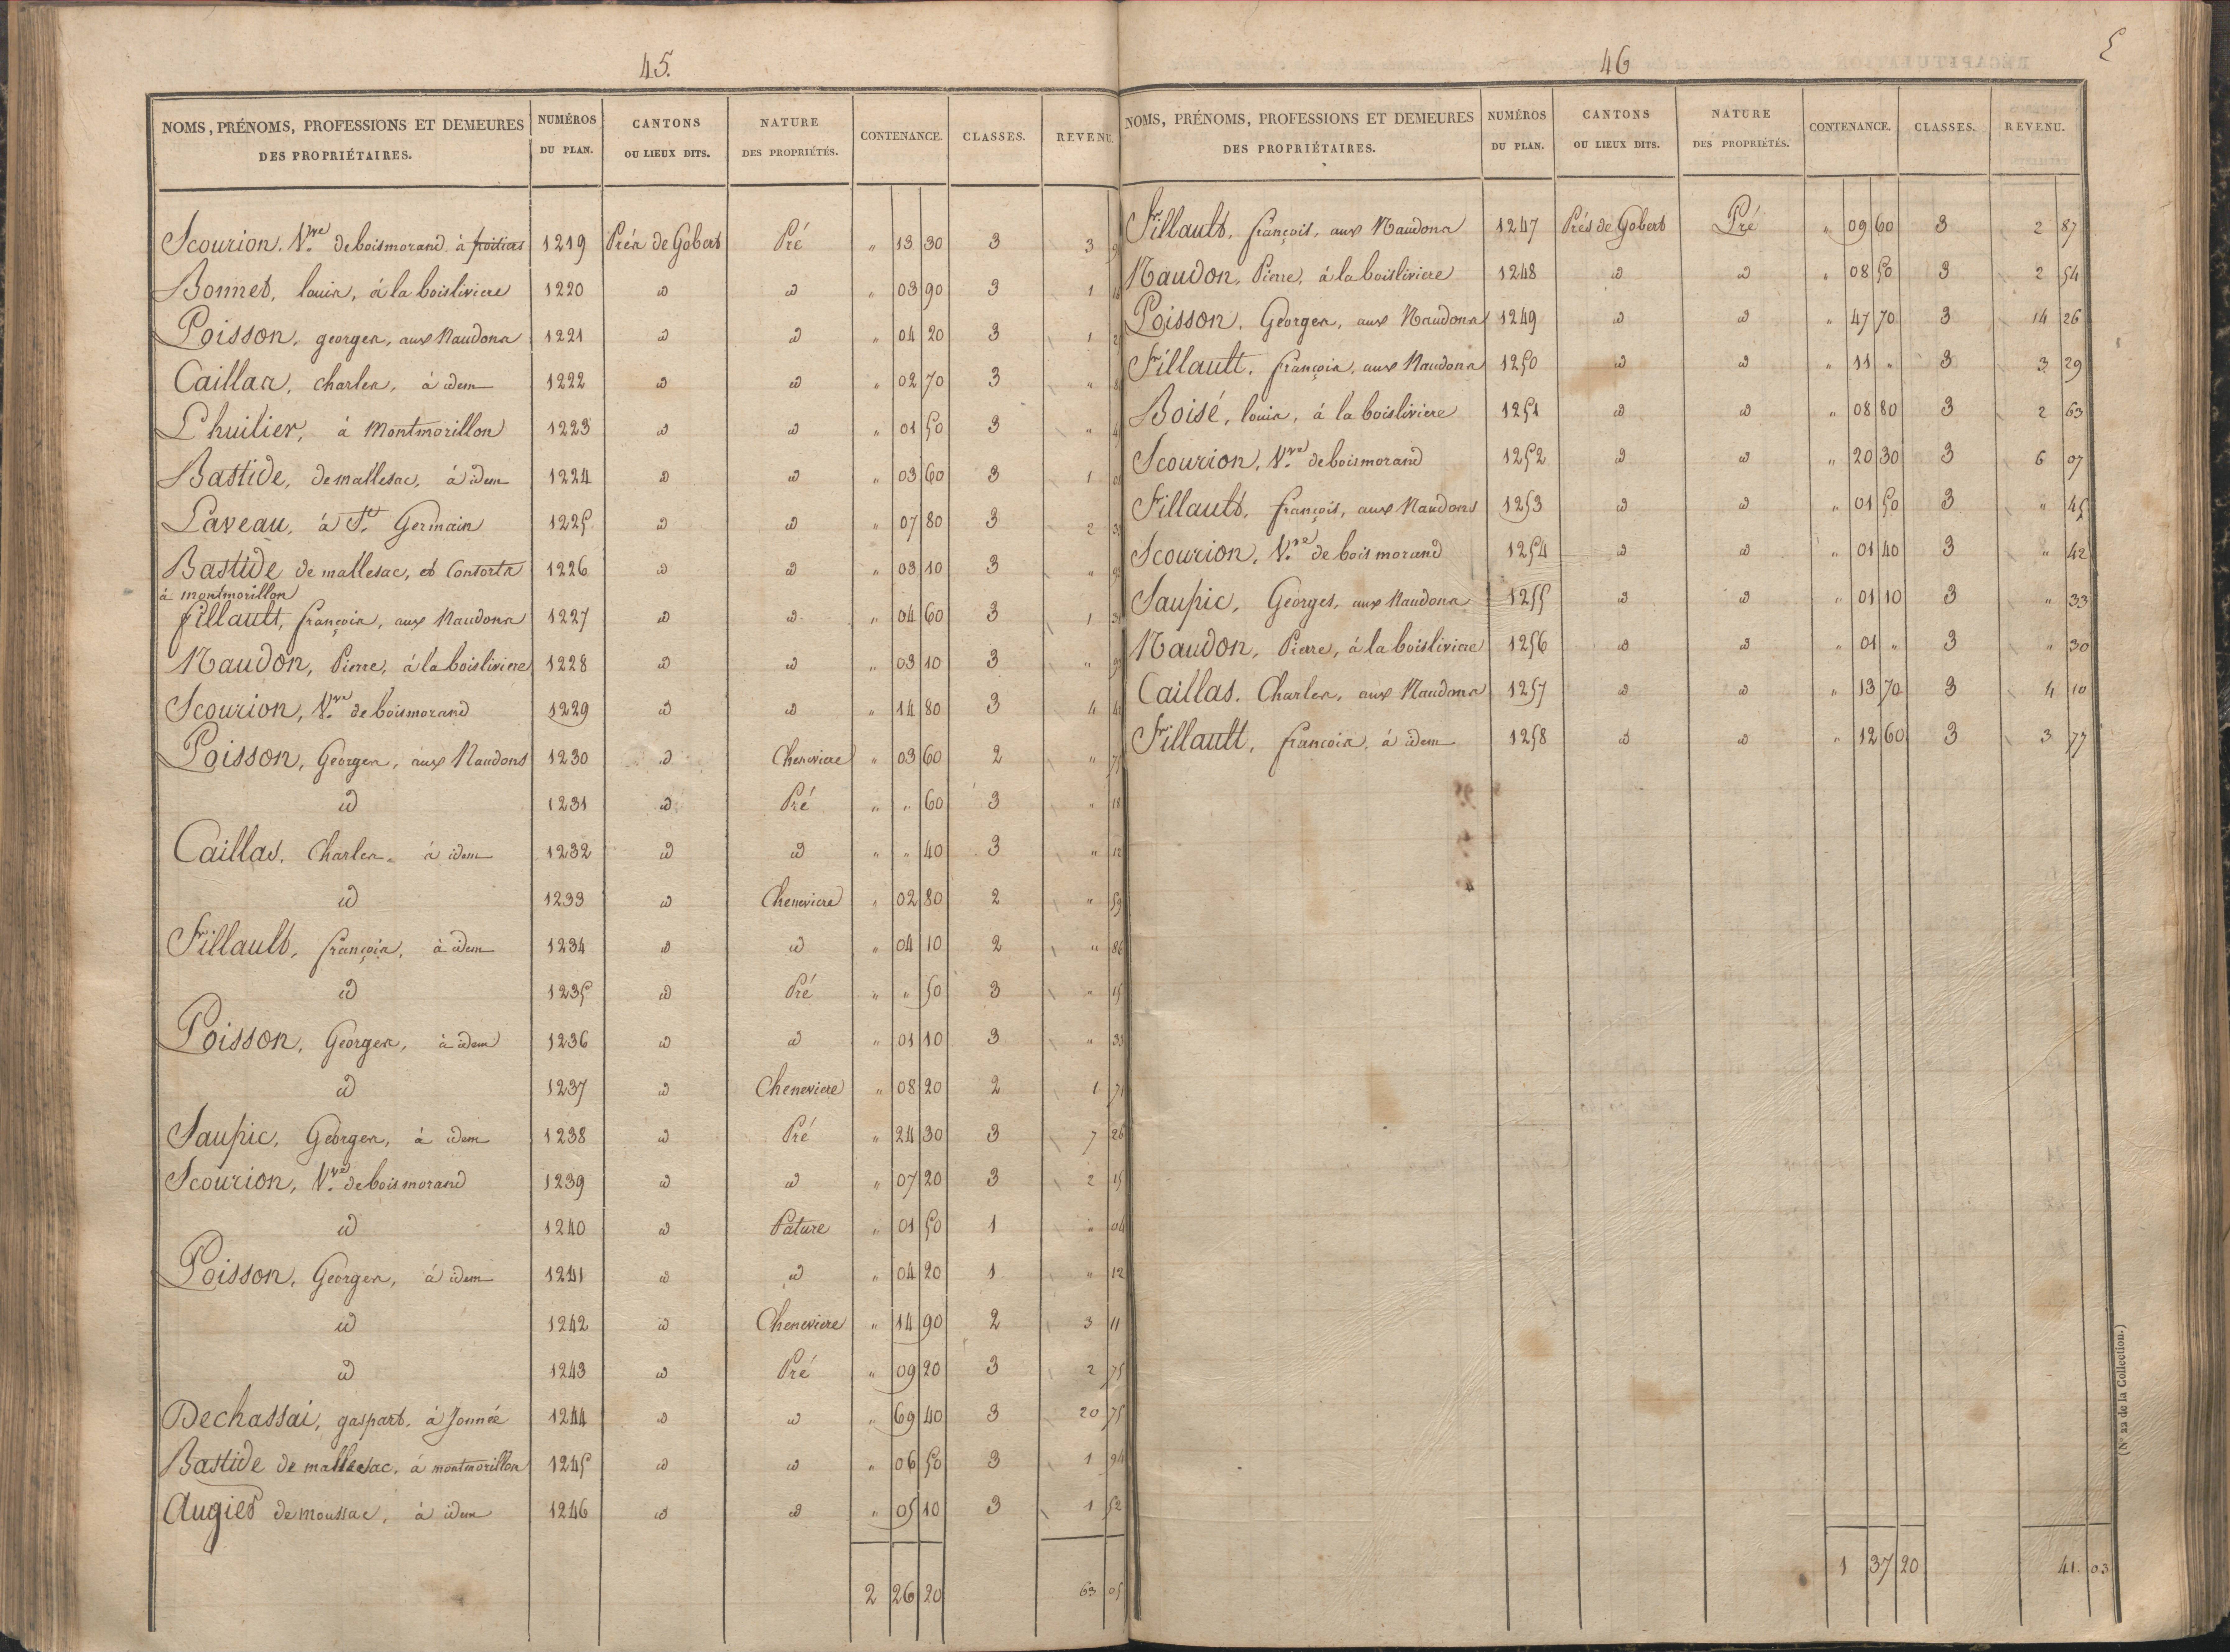 45.
NOMS, PRÉNOMS, PROFESSIONS ET DEMEURES DES PROPRIÉTAIRES. NUMÉROS DU PLAN. CANTONS OU LIEUX DITS. NATURE DES PROPRIÉTÉS. CONTENANCE. CLASSES. REVENU.
Scourion, Vve de boismorand, à poitiers 1219 Prés de Gobert Pré " 13 30 3 3
Bonnet, louis, à la boisliviere 1220 id id " 03 90 3 1
Poisson, georges, aux Naudons 1221 id id " 04 20 3 1
Caillas, charles, à idem 1222 id id " 02 70 3 "
Lhuilier, à Montmorillon 1223 id id " 01 50 3 "
Bastide, de mallesac, à idem 1224 id id " 03 60 3 1
Laveau, à St Germain 1225 id id " 07 80 3 2
Bastide de mallesac, et Consorts 1226 id id " 03 10 3 "
à montmorillon
fillault, françois, aux Naudons 1227 id id " 04 60 3 1
Naudon, Pierre, à la boisliviere 1228 id id " 03 10 3 "
Scourion, Vve de boismorand 1229 id id " 14 80 3 4
Poisson, Georges, aux Naudons 1230 id Cheneviere " 03 60 2 " 75
id 1231 id Pré " " 60 3 " 18
Caillas, Charles, à idem 1232 id id " " 40 3 " 12
id 1233 id Cheneviere " 02 80 2 " 59
Fillault, françois, à idem 1234 id id " 04 10 2 " 86
id 1235 id Pré " " 50 3 " 15
Poisson, Georges, à idem 1236 id id " 01 10 3 " 33
id 1237 id Cheneviere " 08 20 2 1 71
Saupic, Georges, à idem 1238 id Pré " 24 30 3 7 26
Scourion, Vve de boismorand 1239 id id " 07 20 3 2 15
id 1240 id Pature " 01 50 1 " 04
Poisson, Georges, à idem 1241 id id " 04 20 1 " 12
id 1242 id Cheneviere " 14 90 2 3 11
id 1243 id Pré " 09 20 3 2 75
Dechassai, gaspart, à Jonnée 1244 id id " 69 40 3 20 75
Bastide de mallesac, à montmorillon 1245 id id " 06 50 3 1 94
Augier de moussac, à idem 1246 id id " 05 10 3 1 52
2 26 20 63 05
46
NOMS, PRÉNOMS, PROFESSIONS ET DEMEURES DES PROPRIÉTAIRES. NUMÉROS DU PLAN. CANTONS OU LIEUX DITS. NATURE DES PROPRIÉTÉS. CONTENANCE. CLASSES. REVENU.
Fillault, françois, aux Naudons 1247 Prés de Gobert Pré " 09 60 3 2 87
Naudon, Pierre, à la boisliviere 1248 id id " 08 50 3 2 54
Poisson, Georges, aux Naudons 1249 id id " 47 70 3 14 26
Fillault, françois, aux Naudons 1250 id id " 11 " 3 3 29
Boisé, louis, à la boisliviere 1251 id id " 08 80 3 2 63
Scourion, Vve de boismorand 1252 id id " 20 30 3 6 07
Fillault, françois, aux Naudons 1253 id id " 01 50 3 " 45
Scourion, Vve de bois morand 1254 id id " 01 40 3 " 42
Saupic, Georges, aux Naudons 1255 id id " 01 10 3 " 33
Naudon, Pierre, à la boisliviere 1256 id id " 01 " 3 " 30
Caillas, Charles, aux Naudons 1257 id id " 13 70 3 4 10
Fillault, francois, à idem 1258 id id " 12 60 3 3 77
1 37 20 41 03
(N° 22 de la Collection.)